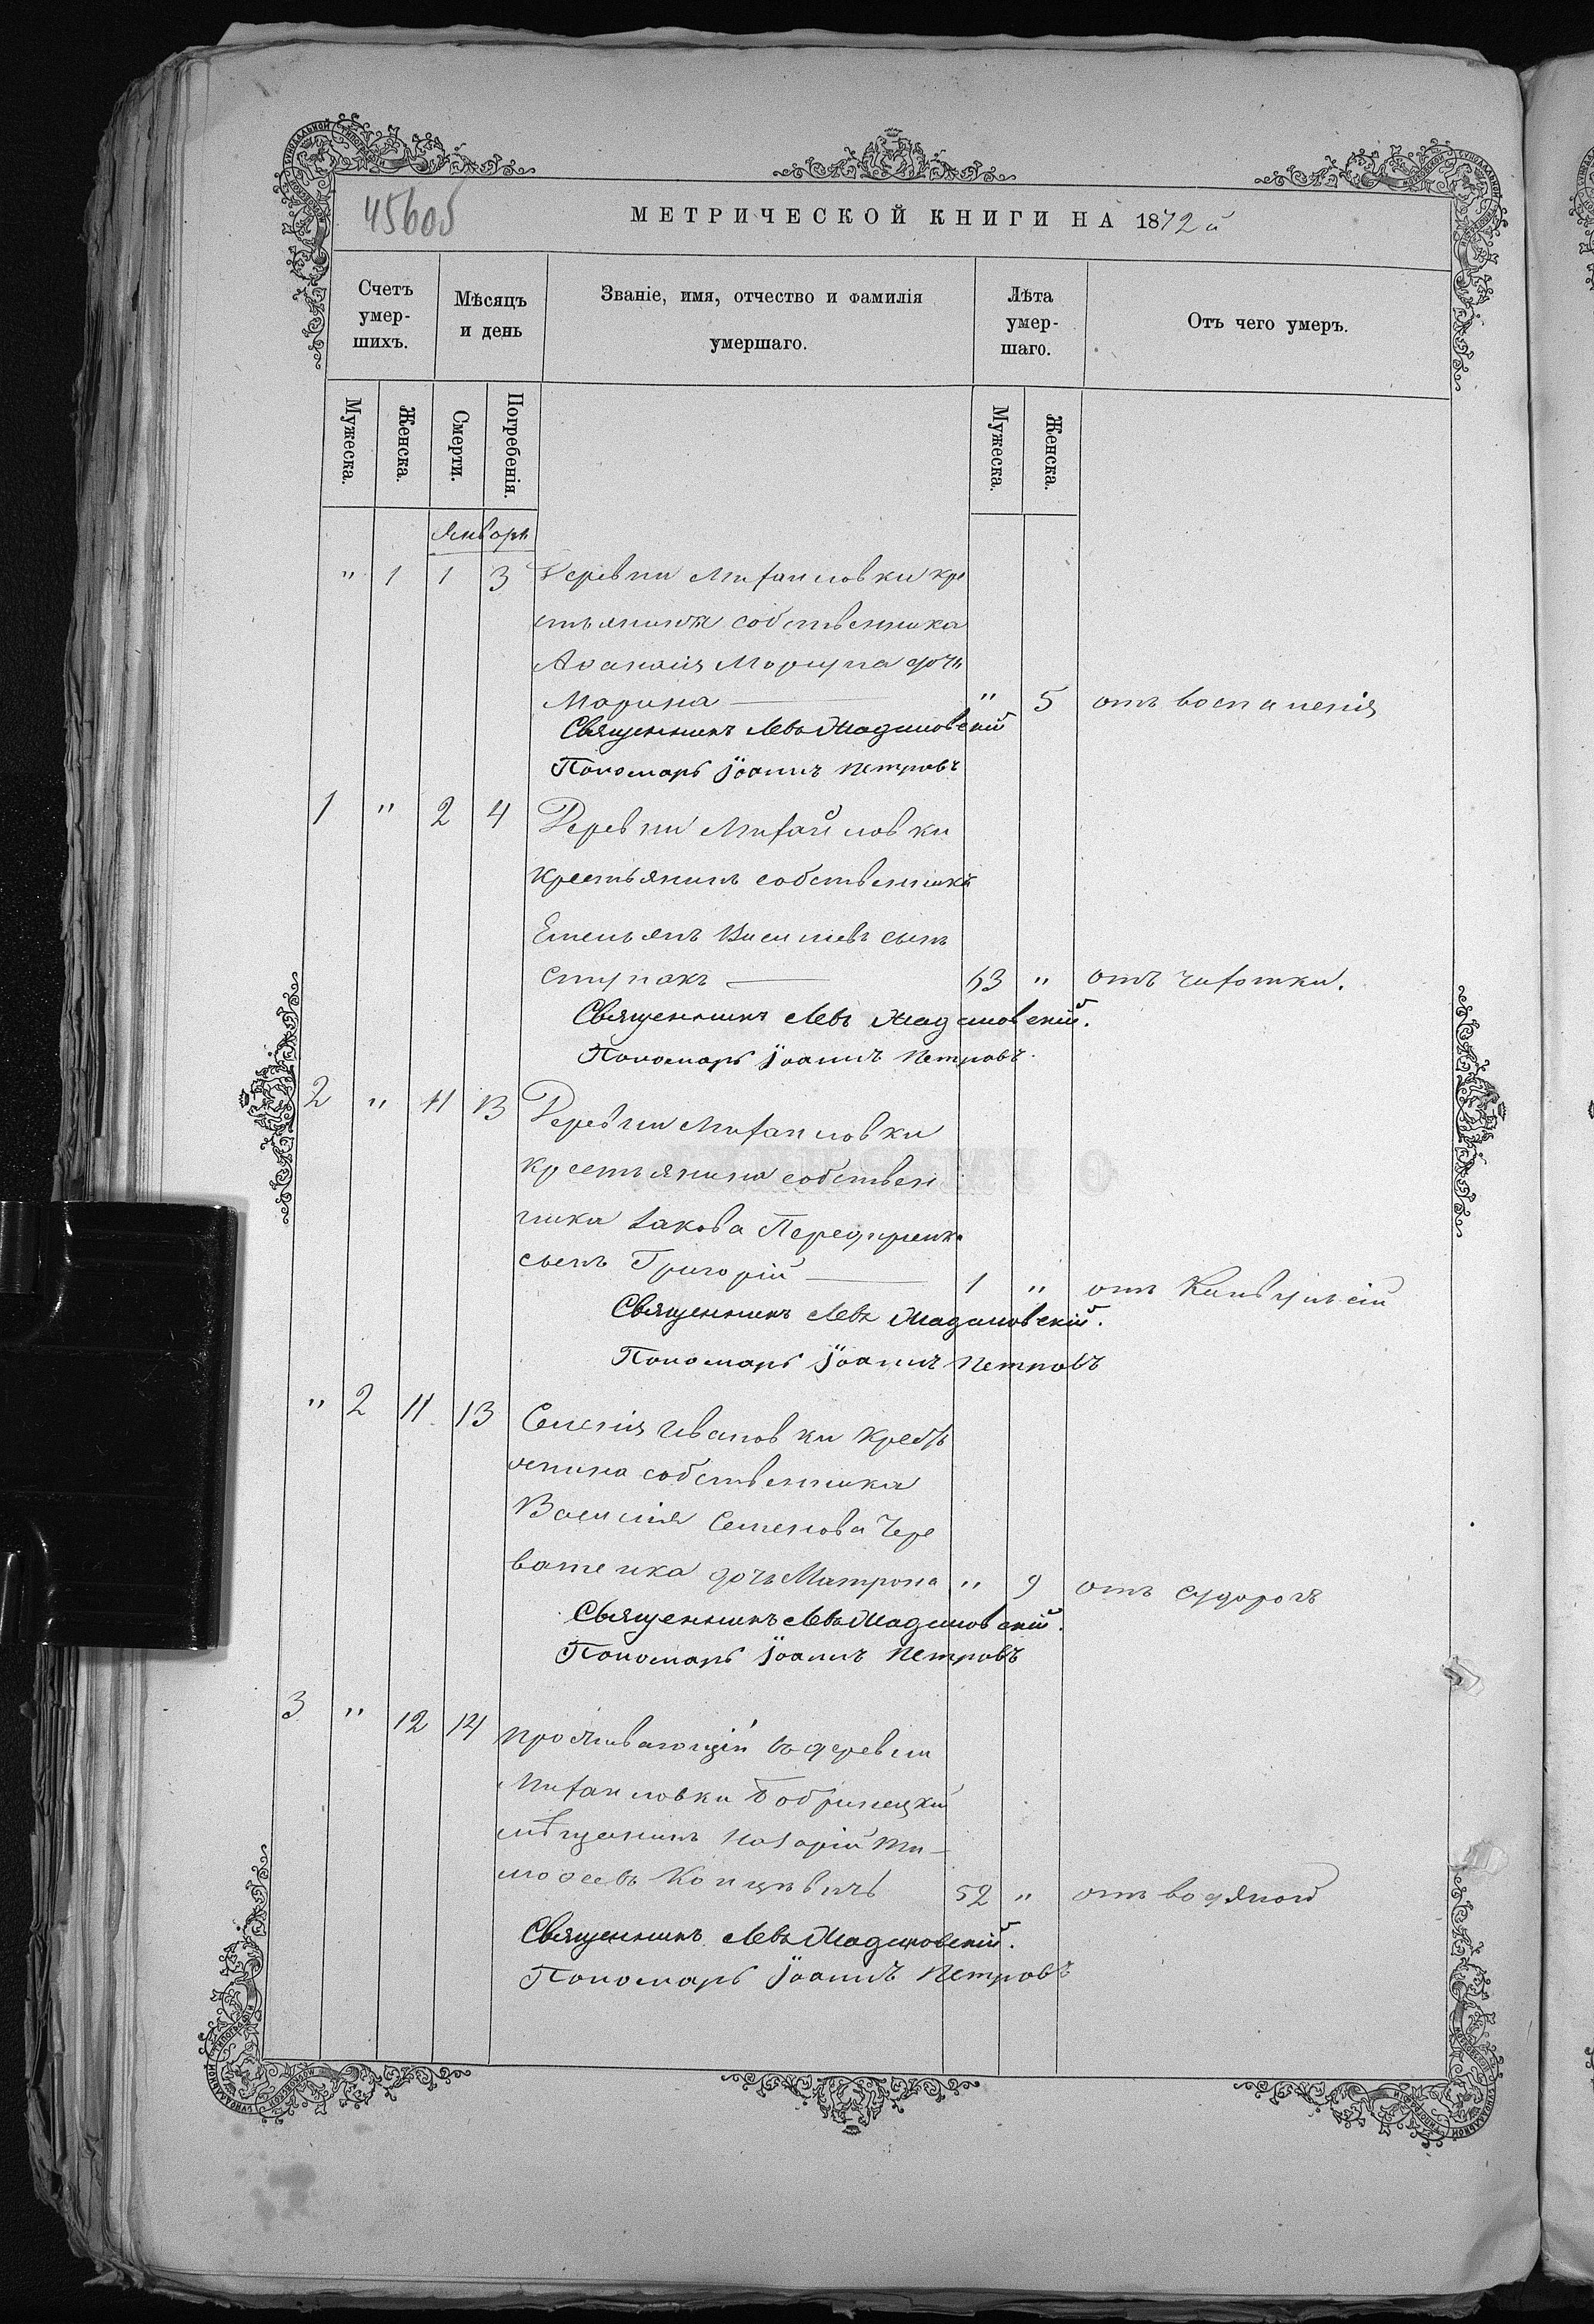 45605
МЕТРИЧЕСКОЙ КНИГИ НА 1872 й
Счетъ умер-шихъ.
Мѣсяцъ и день
Званіе, имя, отчество и фамилія умершаго.
Лѣта умер-шаго.
Отъ чего умеръ.
Мужеска.
Женска.
Смерти.
Погребенія.
Мужеска.
Женска.
Январь
" 1 1 3 Деревни Михаиловки кре
стьянина собственника
Аѳанасія дочь
Марина — " 5 отъ воспаленія
Священникъ Левъ
Пономарь Іоаннъ Петровъ
1 " 2 4 Деревни Михайловки
крестьянинъ собственникъ
Емельянъ Васильевъ сынъ
Ступакъ — 63 " отъ чахотки.
Священникъ Левъ
Пономарь Іоаннъ Петровъ
2 " 11 13 Деревни Михаиловки
крестьянина собствен
ника Іакова
сынъ Григорій — 1 " отъ
Священникъ Левъ
Пономарь Іоаннъ Петровъ
" 2 11 13 Селенія Ивановки крестъ
янина собственника
Василія Семенова Чере
ватенка дочь Матрона " 9 отъ судорогъ
Священникъ Левъ
Пономарь Іоаннъ Петровъ
3 " 12 14 проживающій въ деревни
Михаиловки Бобринецкій
мѣщанинъ Назарій Ти-
моѳеевъ 52 " отъ водяной
Священникъ Левъ
Пономарь Іоаннъ Петровъ